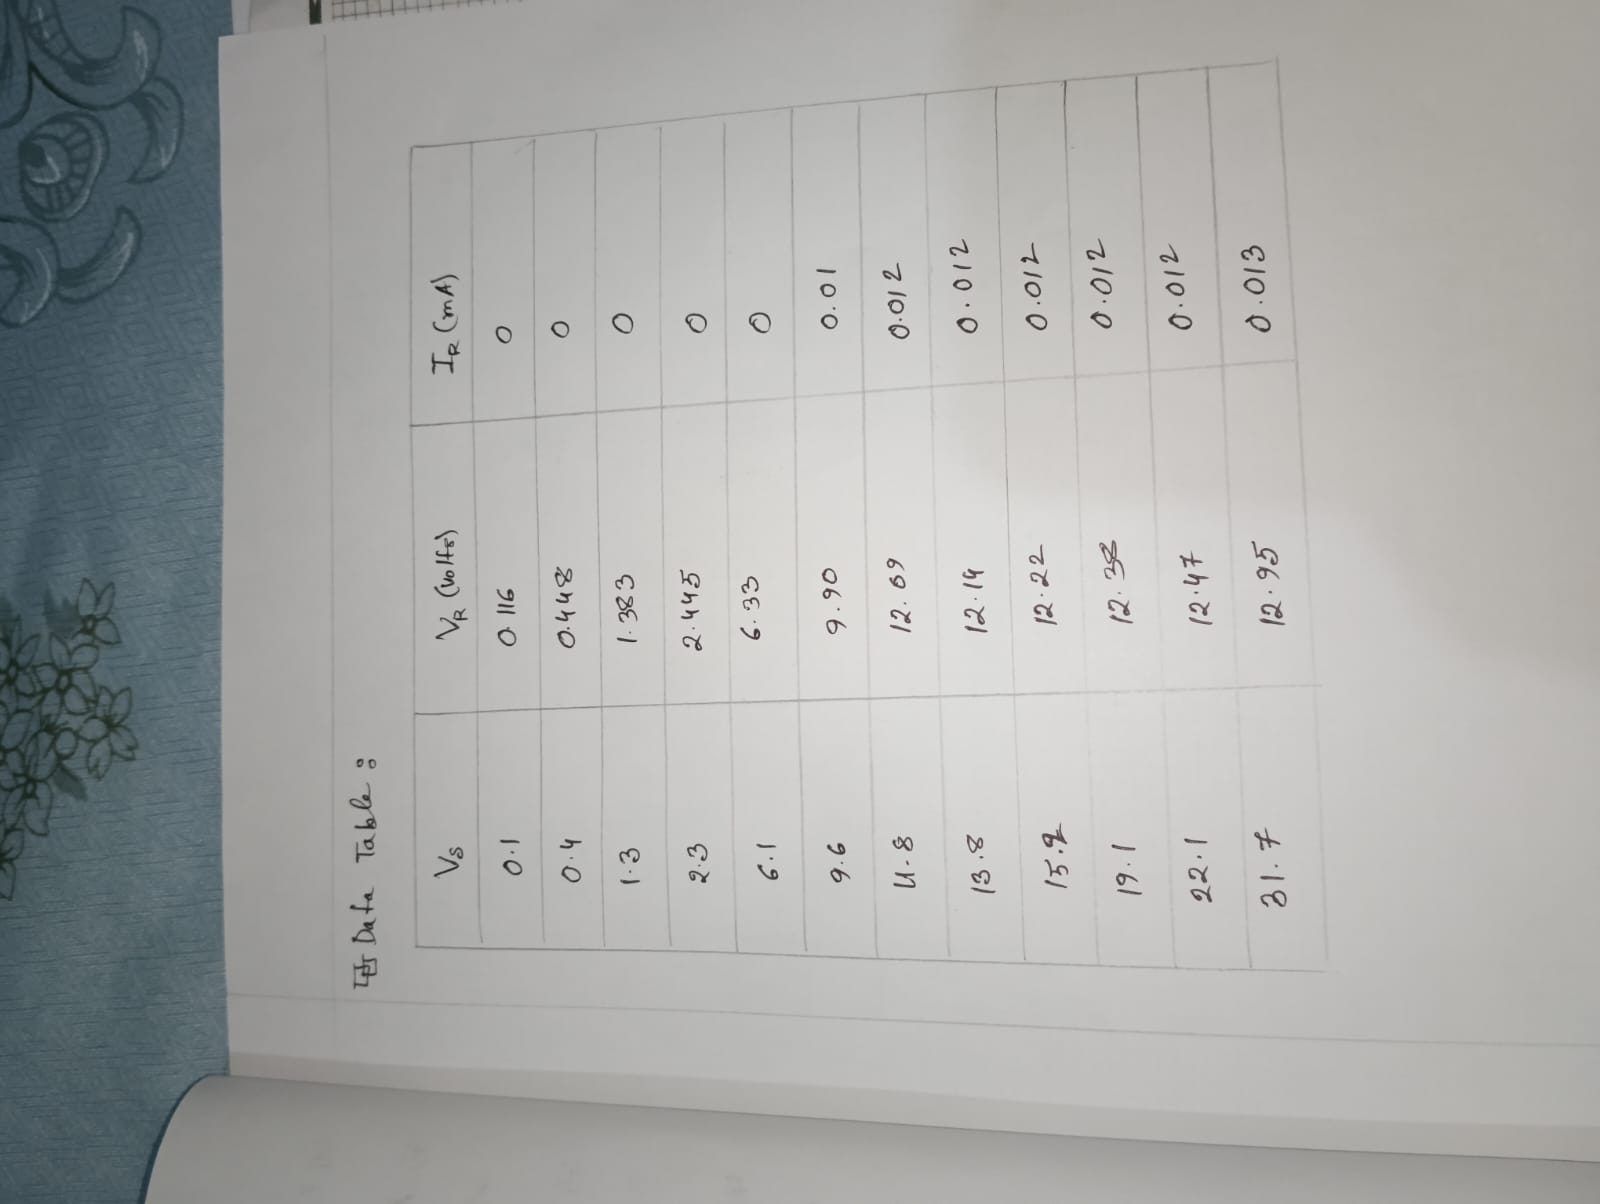 Data Table :
Vs VR (Volts) IR (mA)
0.1 0.116 0
0.4 0.448 0
1.3 1.383 0
2.3 2.445 0
6.1 6.33 0
9.6 9.90 0.01
11.8 12.09 0.012
13.8 12.14 0.012
15.9 12.22 0.012
19.1 12.38 0.012
22.1 12.47 0.012
31.7 12.95 0.013